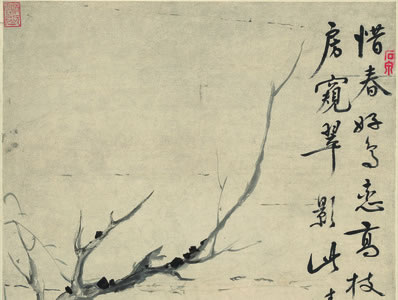 惜春好鳥恋高枝
房窺翠影此